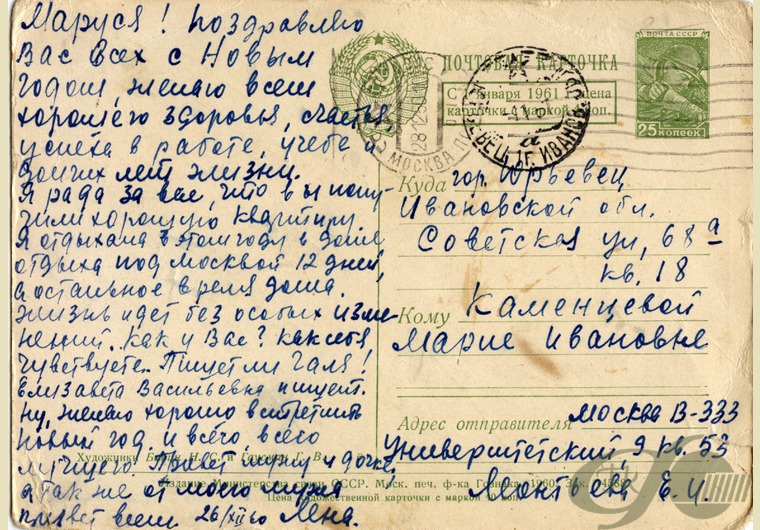 Маруся! Поздравляю
Вас всех с Новым
годом, желаю всем
хорошего здоровья, счастья,
успеха в работе, учебе и
долгих лет жизни.
Я рада за вас, что вы полу-
чили хорошую квартиру
Я отдыхала в этом году в доме
отдыха под Москвой 12 дней,
а остальное время дома.
Жизнь идет без особых изме-
нений. Как у Вас? Как себя
чувствуете. Пишет ли Галя!
Елизавета Васильевна пишет.
Ну, желаю хорошо встретить
Новый год и всего, всего
лучшего. Привет мужу и дочке,
а так же от моего мужа
привет всем 26/XII 60 Лена.
ПОЧТОВАЯ КАРТОЧКА
С 1 января 1961 г. цена
карточки с маркой коп.
ПОЧТА СССР
25 КОПЕЕК
МОСКВА
28 12
Куда гор. Юрьевец
Ивановской обл.
Советская ул, 68а
кв. 18
Кому Каменцевой
Марие Ивановне
Адрес отправителя Москва В-333
Университетский, 9 кв. 53
Леонтьева Е. И.
Художники Н. С. и Г. В.
Издание Министерства связи СССР. Моск. печ. ф-ка Гознака. 1960. Зак.
Цена художественной карточки с маркой коп.